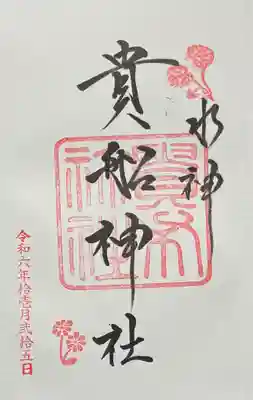 水神
貴船神社
貴船神社
令和六年拾壱月弐拾五日